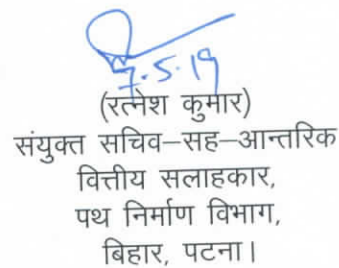 7.5.19
(रत्नेश कुमार)
संयुक्त सचिव–सह–आन्तरिक
वित्तीय सलाहकार,
पथ निर्माण विभाग,
बिहार, पटना।